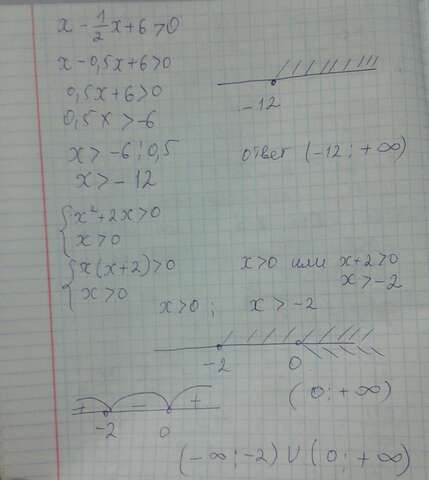 x - 1/2 x + 6 > 0
x - 0,5x + 6 > 0
0,5x + 6 > 0
0,5x > -6
x > -6 : 0,5
x > - 12
-12
ответ (-12 ; +∞)
{ x² + 2x > 0
x > 0
{ x(x+2) > 0
x > 0
x > 0 или x+2 > 0
x > -2
x > 0 ; x > -2
-2 0
(0 ; +∞)
+ - +
-2 0
(-∞ ; -2) U (0 ; +∞)